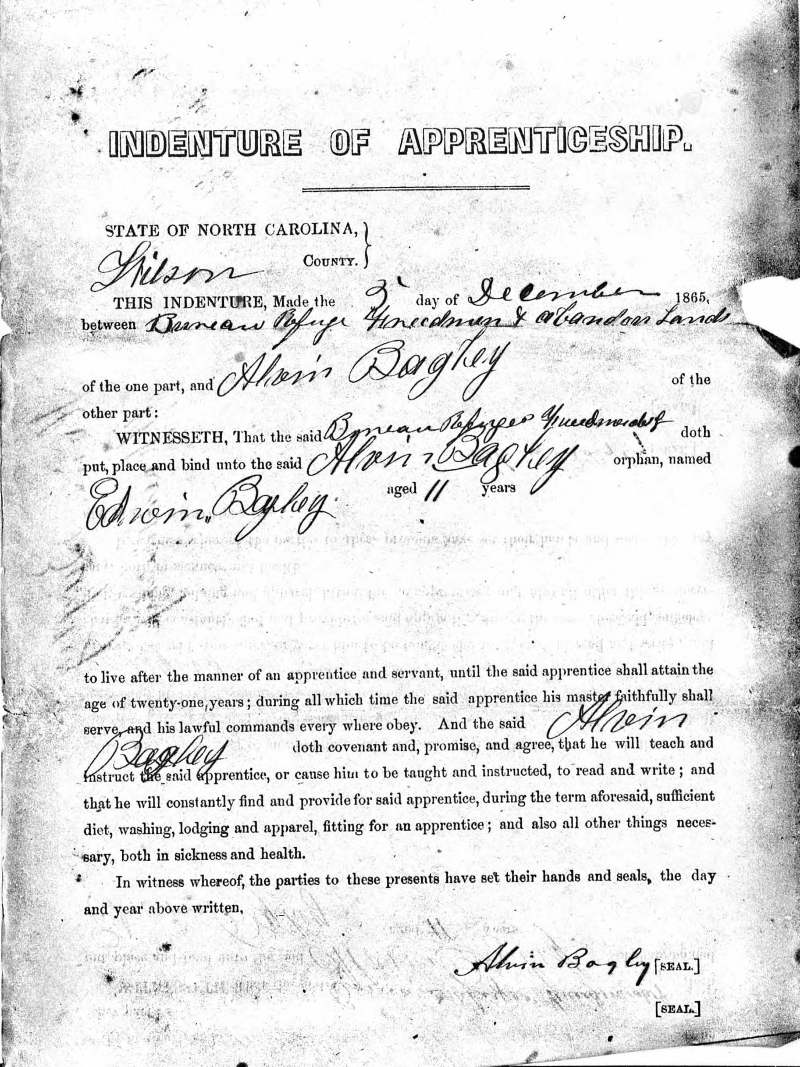 INDENTURE OF APPRENTICESHIP.
STATE OF NORTH CAROLINA,
Wilson COUNTY.
THIS INDENTURE, Made the 3 day of December 1865,
between Bureau Refuge Freedmen & abandon Lands
of the one part, and Alvin Bagley of the
other part:
WITNESSETH, That the said Bureau Refugees Freedmen doth
put, place and bind unto the said Alvin Bagley orphan, named
Edwin Bagley. aged 11 years
to live after the manner of an apprentice and servant, until the said apprentice shall attain the
age of twenty-one, years; during all which time the said apprentice his master faithfully shall
serve, and his lawful commands every where obey. And the said Alvin
Bagley doth covenant and, promise, and agree, that he will teach and
instruct the said apprentice, or cause him to be taught and instructed, to read and write; and
that he will constantly find and provide for said apprentice, during the term aforesaid, sufficient
diet, washing, lodging and apparel, fitting for an apprentice; and also all other things neces-
sary, both in sickness and health.
In witness whereof, the parties to these presents have set their hands and seals, the day
and year above written,
Alvin Bagley [SEAL.]
[SEAL.]